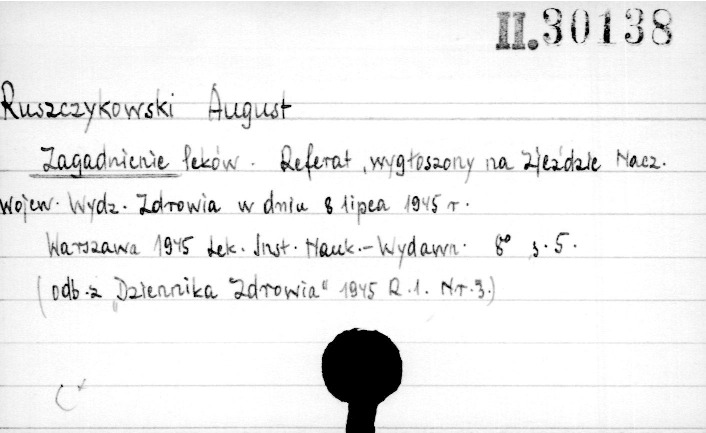 II.30138
Ruszczykowski August
Zagadnienie leków. Referat, wygłoszony na Zjeździe Nacz.
Wojew. Wydz. Zdrowia w dniu 8 lipca 1945 r.
Warszawa 1945 Lek. Inst. Nauk.-Wydawn. 8° s. 5.
(odb. z „Dziennika Zdrowia" 1945 R. 1. Nr. 3.)